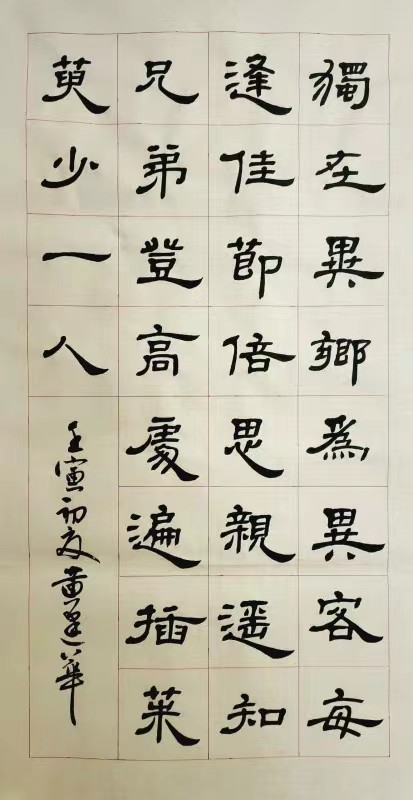 獨在異鄉為異客每
逢佳節倍思親遙知
兄弟登高處遍插茱
萸少一人
壬寅初夏黄華